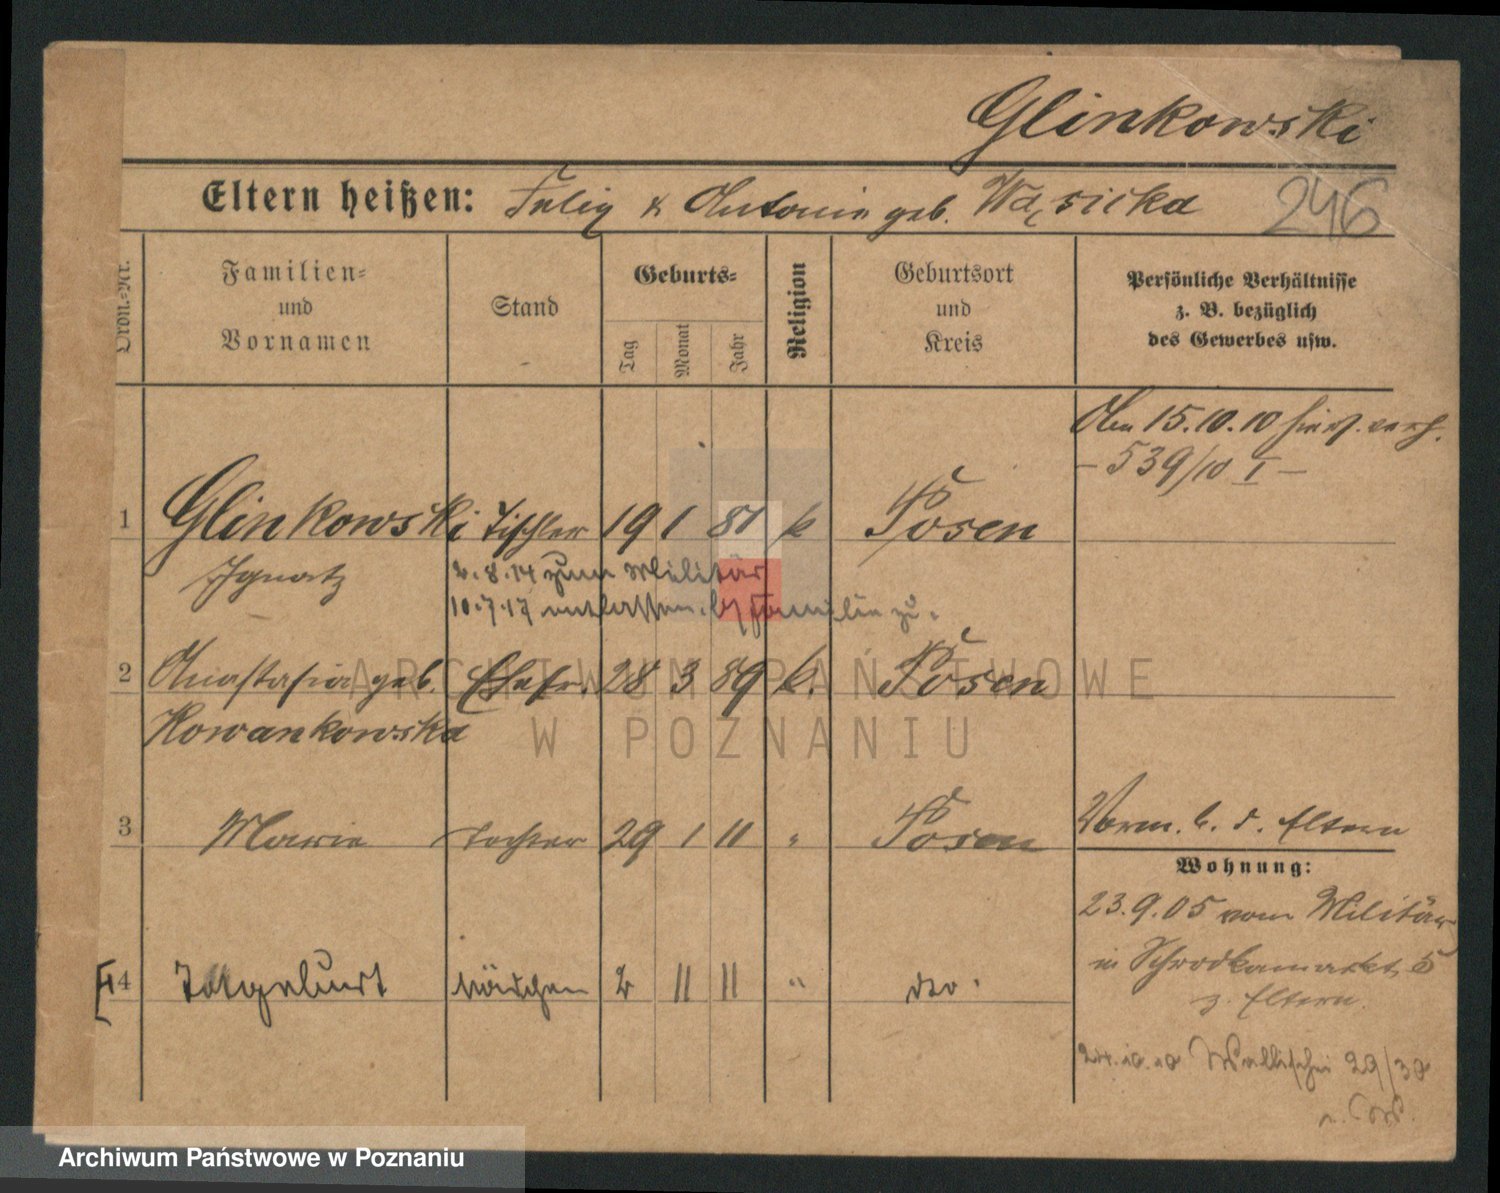 Glinkowski
Eltern heißen: Felix & Antonie geb. Wąsicka
246
Ordn.-Nr.
Familien-
und
Vornamen
Stand
Geburts-
Tag
Monat
Jahr
Religion
Geburtsort
und
Kreis
Persönliche Verhältnisse
z. B. bezüglich
des Gewerbes usw.
Am 15.10.10 hier verh.
– 539/10 I –
1 Glinkowski Tischler 19 1 81 k Posen
Ignatz
2.8.14 zum Militär
10.7.17 entlassen. Familie zu.
2 Anastasia geb. Ehefr. 28 3 89 k. Posen
Nowankowska
3 Marie Tochter 29 1 11 " Posen
Vorm. b. d. Eltern
Wohnung:
23.9.05 vom Militär
in Schrodkamarkt 5
z. Eltern.
4 Totgeburt Mädchen 2 11 11 " do.
24.10.10 Wallischei 29/30
ARCHIWUM PAŃSTWOWE
W POZNANIU
Archiwum Państwowe w Poznaniu